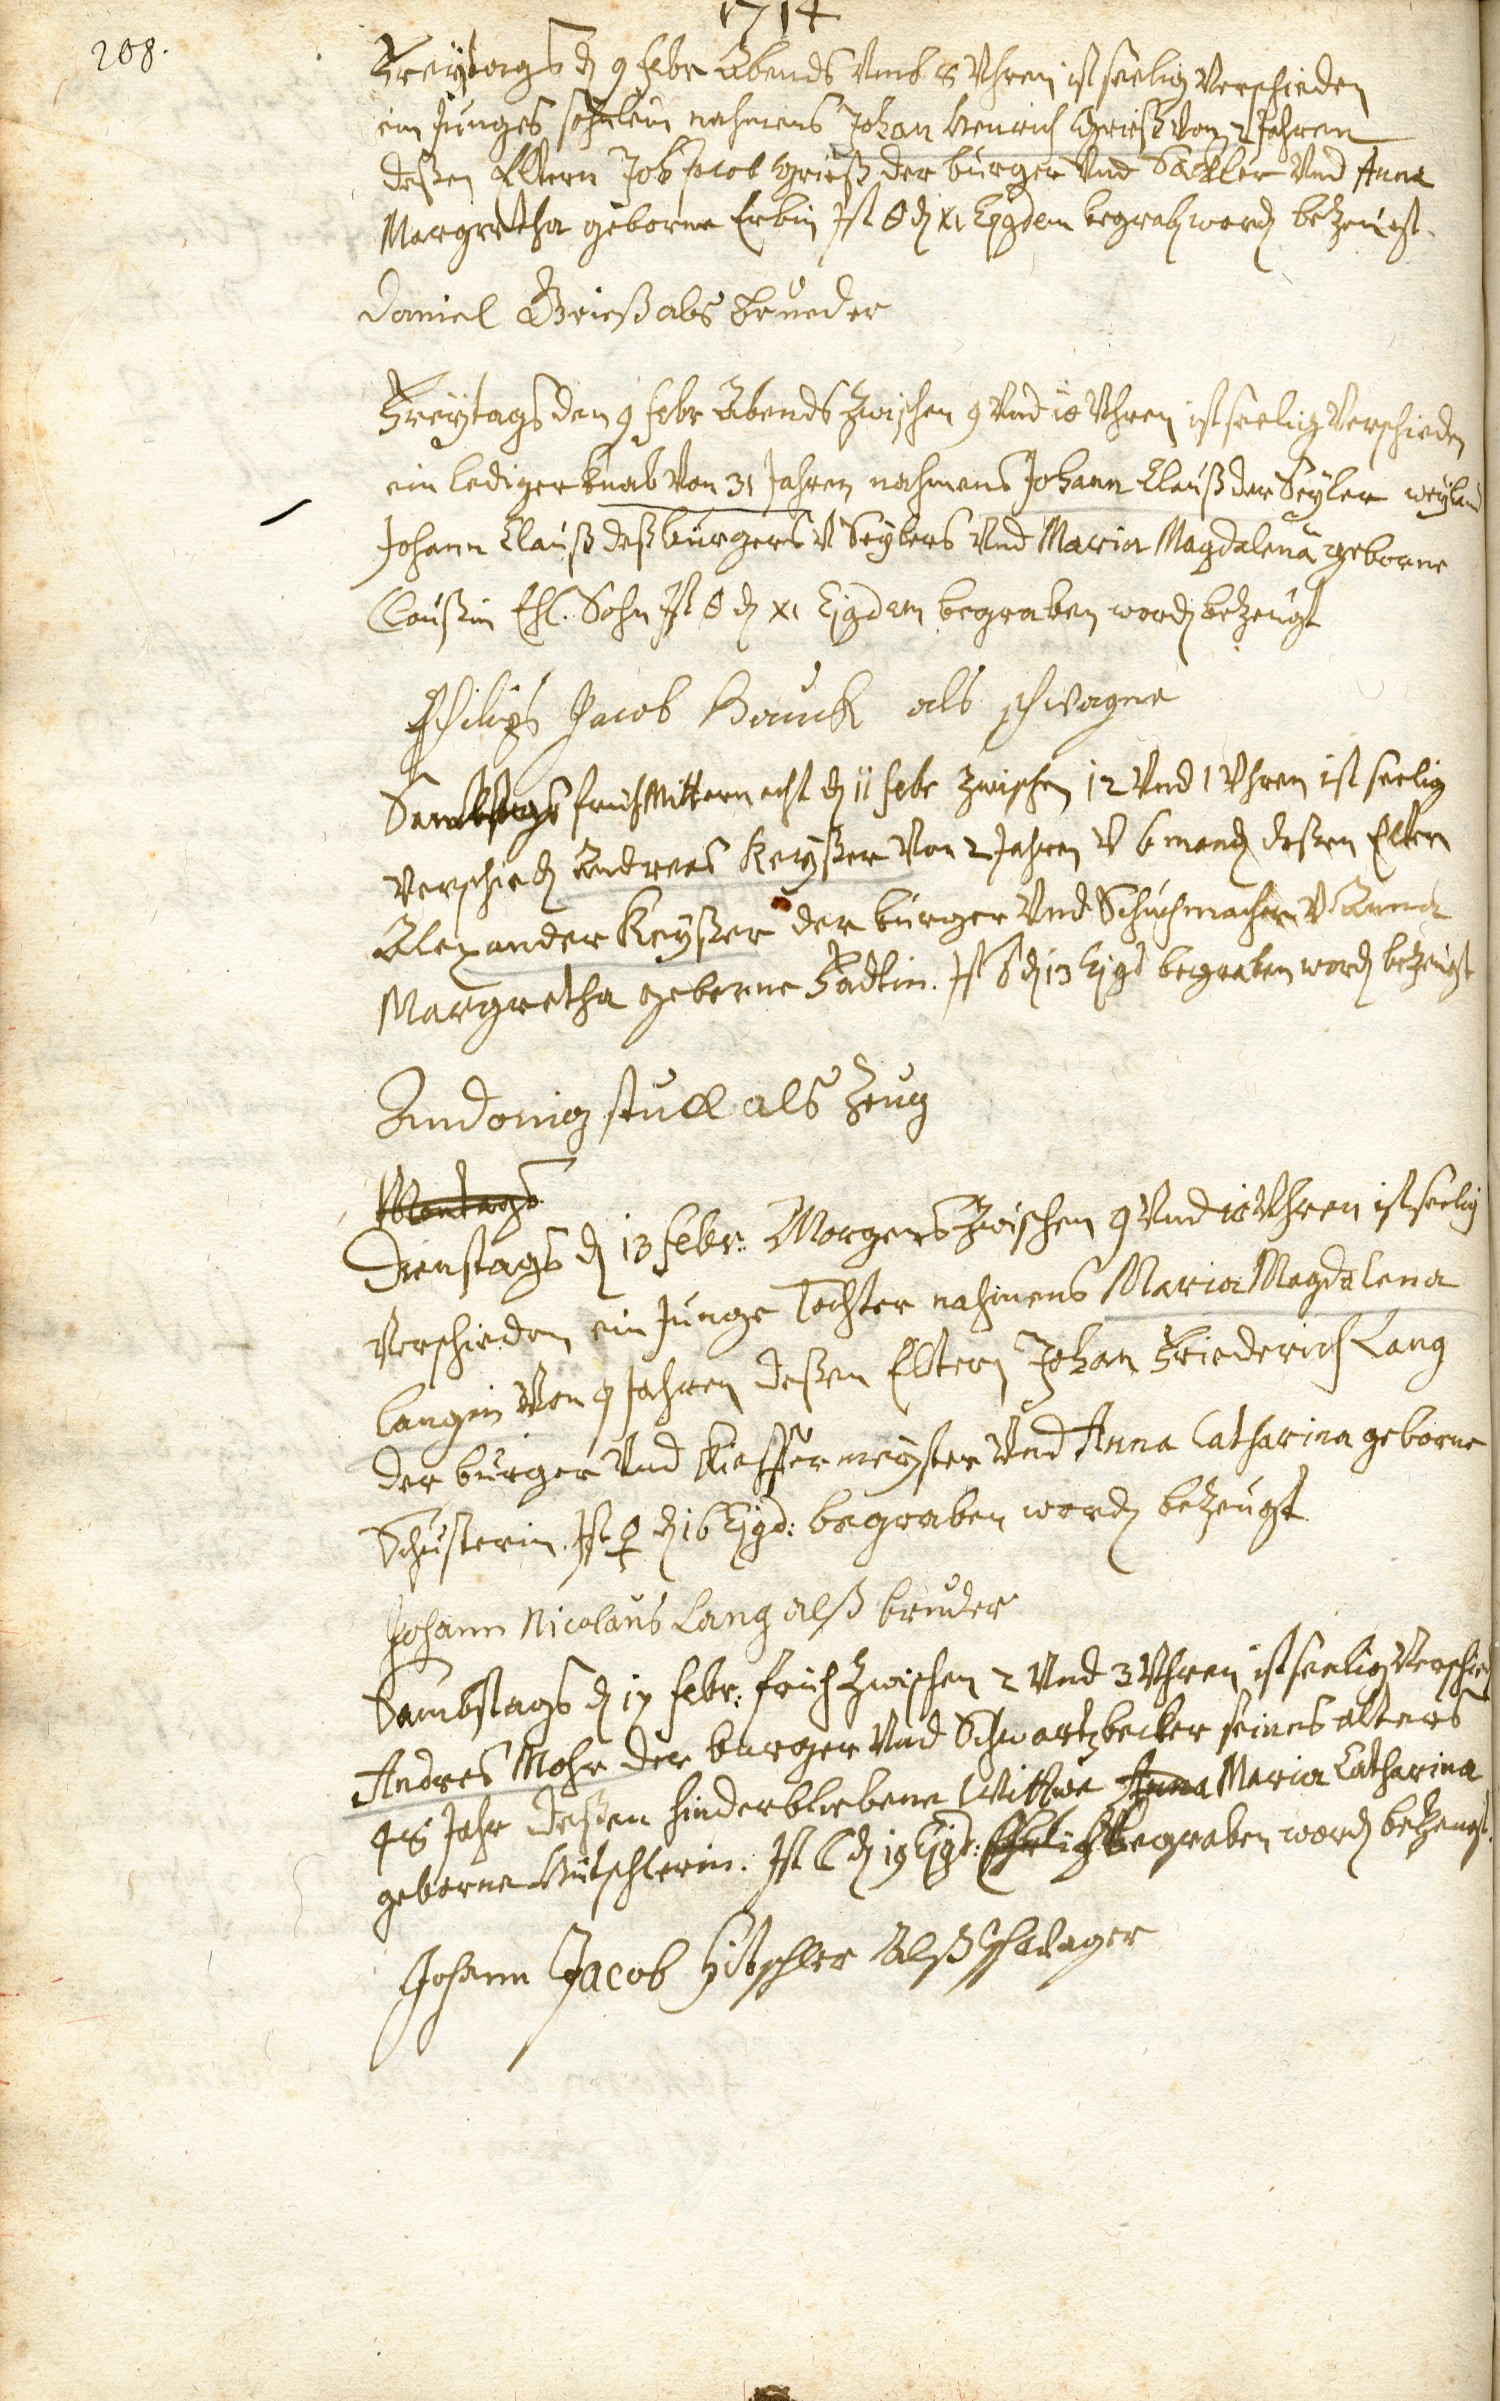 1714
208.
Freÿtags d 9 febr Abends Umb 8 Uhren ist seelig Verschieden
ein Junges söhnlein nahmens Johan Henrich Grieß Von 2 Jahren
deßen Eltern Job Jacob Grieß der burger Und Säckler Und Anna
Margretha geborne Erbin Ist d XI Ejgdem begrab word bezeugt.
Daniel Grieß als brueder
Freÿtags den 9 febr Abends Zwischen 9 Und 10 Uhren ist seelig Verschieden
ein lediger Knab Von 31 Jahren nahmens Johann Clauß der Seÿler weÿland
Johann Clauß deß burgers V Seÿlers Und Maria Magdalena geborne
Claußin Ehl. Sohn Ist d XI Ejgdem begraben word bezeugt
Philips Jacob Hauck als schwager
Sambstags früh Mitternacht d 11 febr Zwischen 12 Und 1 Uhren ist seelig
Verschied Andreas Keÿßer Von 2 Jahren V 6 mond deßen Eltern
Alexander Keÿßer der burger Und Schuhmacher V Anna
Margretha geborne Hadtin. Ist d 13 Ejgd begraben word bezeugt
Andonig stull als Zeug
Montags
Dienstags d 13 febr: Morgens Zwischen 9 Und 10 Uhren ist seelig
Verschieden ein Junge Tochter nahmens Maria Magdalena
Langin Von 9 Jahren deßen Eltern Johan Friederich Lang
der burger Und Kieffermeÿster Und Anna Catharina geborne
Schusterin. Ist ♀ d 16 Ejgd: begraben word bezeugt
Johann Nicolaus Lang alß bruder
Sambstags d 17 febr: früh Zwischen 2 Und 3 Uhren ist seelig Verschied
Andres Mohr der burger Und Schwartzbecker seines alters
48 Jahr deßen hinderbliebene Wittwe Anna Maria Catharina
geborne Hütschlerin. Ist d 19 Ejgd: Ehrlich begraben word bezeugt.
Johann Jacob Hitschler Alß Schwager